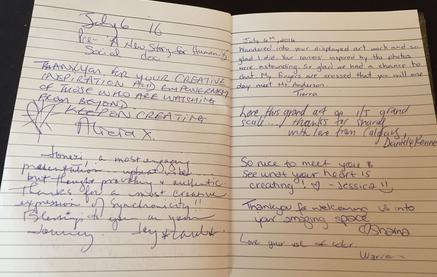 July 6 16
Pre- "A New Story for Humanity"
Social doc.
THANKYOU FOR YOUR CREATIVE
INSPIRATION AND EMPOWERMENT
OF THOSE WHO ARE WATCHING
FROM BEYOND
KEEP ON CREATING
Alicia X.
a most engaging
presentation
but
Thanks for a most creative
expression of synchronicity!!
Blessings to you on your
Journey.
July 6th, 2016
Wandered into your displayed art work and so
glad I did. Your canvas' inspired by the photos
were astounding. So glad we had a chance to
chat. My fingers are crossed that you will one
day meet Mr. Anderson.
Tierra
Love this grand art on its grand
scale... thanks for sharing
with love from Calgary,
Danielle
So nice to meet you &
see what your heart is
creating! ♡ - Jessica!!
Thankyou for welcoming us into
your amazing space
♡Shaina
Love your use of color.